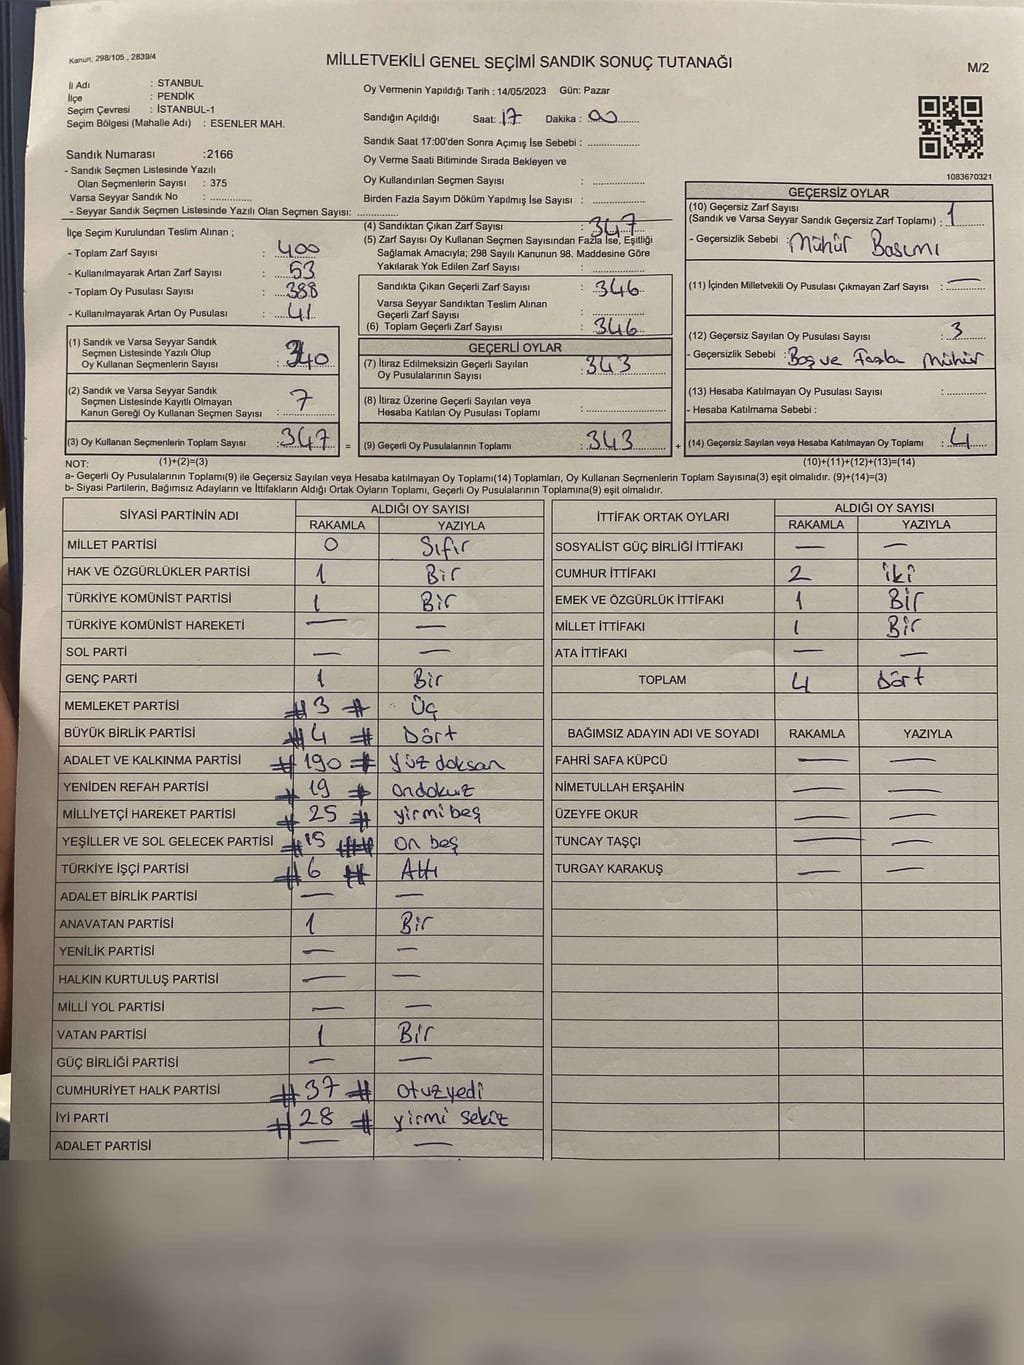 Kanun: 298/105 , 2839/4
MİLLETVEKİLİ GENEL SEÇİMİ SANDIK SONUÇ TUTANAĞI
M/2
İl Adı : STANBUL
İlçe : PENDİK
Seçim Çevresi : İSTANBUL-1
Seçim Bölgesi (Mahalle Adı) : ESENLER MAH.
Oy Vermenin Yapıldığı Tarih : 14/05/2023 Gün: Pazar
Sandığın Açıldığı Saat: 17 Dakika : 00
Sandık Saat 17:00'den Sonra Açımış İse Sebebi :
Oy Verme Saati Bitiminde Sırada Bekleyen ve
Oy Kullandırılan Seçmen Sayısı :
Birden Fazla Sayım Döküm Yapılmış İse Sayısı :
Sandık Numarası :2166
- Sandık Seçmen Listesinde Yazılı
Olan Seçmenlerin Sayısı : 375
Varsa Seyyar Sandık No :
- Seyyar Sandık Seçmen Listesinde Yazılı Olan Seçmen Sayısı:
1083670321
İlçe Seçim Kurulundan Teslim Alınan ;
- Toplam Zarf Sayısı : 400
- Kullanılmayarak Artan Zarf Sayısı : 53
- Toplam Oy Pusulası Sayısı : 388
- Kullanılmayarak Artan Oy Pusulası : 41
(1) Sandık ve Varsa Seyyar Sandık
Seçmen Listesinde Yazılı Olup
Oy Kullanan Seçmenlerin Sayısı : 340
(2) Sandık ve Varsa Seyyar Sandık
Seçmen Listesinde Kayıtlı Olmayan
Kanun Gereği Oy Kullanan Seçmen Sayısı : 7
(3) Oy Kullanan Seçmenlerin Toplam Sayısı : 347 =
(4) Sandıktan Çıkan Zarf Sayısı : 347
(5) Zarf Sayısı Oy Kullanan Seçmen Sayısından Fazla İse, Eşitliği
Sağlamak Amacıyla; 298 Sayılı Kanunun 98. Maddesine Göre
Yakılarak Yok Edilen Zarf Sayısı :
Sandıkta Çıkan Geçerli Zarf Sayısı : 346
Varsa Seyyar Sandıktan Teslim Alınan
Geçerli Zarf Sayısı :
(6) Toplam Geçerli Zarf Sayısı : 346
GEÇERLİ OYLAR
(7) İtiraz Edilmeksizin Geçerli Sayılan
Oy Pusulalarının Sayısı : 343
(8) İtiraz Üzerine Geçerli Sayılan veya
Hesaba Katılan Oy Pusulası Toplamı :
(9) Geçerli Oy Pusulalarının Toplamı : 343 +
GEÇERSİZ OYLAR
(10) Geçersiz Zarf Sayısı
(Sandık ve Varsa Seyyar Sandık Geçersiz Zarf Toplamı) : 1
- Geçersizlik Sebebi : Mühür Basımı
(11) İçinden Milletvekili Oy Pusulası Çıkmayan Zarf Sayısı : —
(12) Geçersiz Sayılan Oy Pusulası Sayısı : 3
- Geçersizlik Sebebi : Boş ve Fazla Mühür
(13) Hesaba Katılmayan Oy Pusulası Sayısı :
- Hesaba Katılmama Sebebi :
(14) Geçersiz Sayılan veya Hesaba Katılmayan Oy Toplamı : 4
NOT: (1)+(2)=(3) (10)+(11)+(12)+(13)=(14)
a- Geçerli Oy Pusulalarının Toplamı(9) ile Geçersiz Sayılan veya Hesaba katılmayan Oy Toplamı(14) Toplamları, Oy Kullanan Seçmenlerin Toplam Sayısına(3) eşit olmalıdır. (9)+(14)=(3)
b- Siyasi Partilerin, Bağımsız Adayların ve İttifakların Aldığı Ortak Oyların Toplamı, Geçerli Oy Pusulalarının Toplamına(9) eşit olmalıdır.
SİYASİ PARTİNİN ADI ALDIĞI OY SAYISI
RAKAMLA YAZIYLA
MİLLET PARTİSİ 0 Sıfır
HAK VE ÖZGÜRLÜKLER PARTİSİ 1 Bir
TÜRKİYE KOMÜNİST PARTİSİ 1 Bir
TÜRKİYE KOMÜNİST HAREKETİ — —
SOL PARTİ — —
GENÇ PARTİ 1 Bir
MEMLEKET PARTİSİ #3# Üç
BÜYÜK BİRLİK PARTİSİ #4# Dört
ADALET VE KALKINMA PARTİSİ #190# Yüz doksan
YENİDEN REFAH PARTİSİ #19# ondokuz
MİLLİYETÇİ HAREKET PARTİSİ #25# yirmi beş
YEŞİLLER VE SOL GELECEK PARTİSİ #15## on beş
TÜRKİYE İŞÇİ PARTİSİ #6# Altı
ADALET BİRLİK PARTİSİ — —
ANAVATAN PARTİSİ 1 Bir
YENİLİK PARTİSİ — —
HALKIN KURTULUŞ PARTİSİ — —
MİLLİ YOL PARTİSİ — —
VATAN PARTİSİ 1 Bir
GÜÇ BİRLİĞİ PARTİSİ — —
CUMHURİYET HALK PARTİSİ #37# otuzyedi
İYİ PARTİ #28# yirmi sekiz
ADALET PARTİSİ — —
İTTİFAK ORTAK OYLARI ALDIĞI OY SAYISI
RAKAMLA YAZIYLA
SOSYALİST GÜÇ BİRLİĞİ İTTİFAKI — —
CUMHUR İTTİFAKI 2 iki
EMEK VE ÖZGÜRLÜK İTTİFAKI 1 Bir
MİLLET İTTİFAKI 1 Bir
ATA İTTİFAKI — —
TOPLAM 4 Dört
BAĞIMSIZ ADAYIN ADI VE SOYADI RAKAMLA YAZIYLA
FAHRİ SAFA KÜPCÜ — —
NİMETULLAH ERŞAHİN — —
ÜZEYFE OKUR — —
TUNCAY TAŞÇI — —
TURGAY KARAKUŞ — —